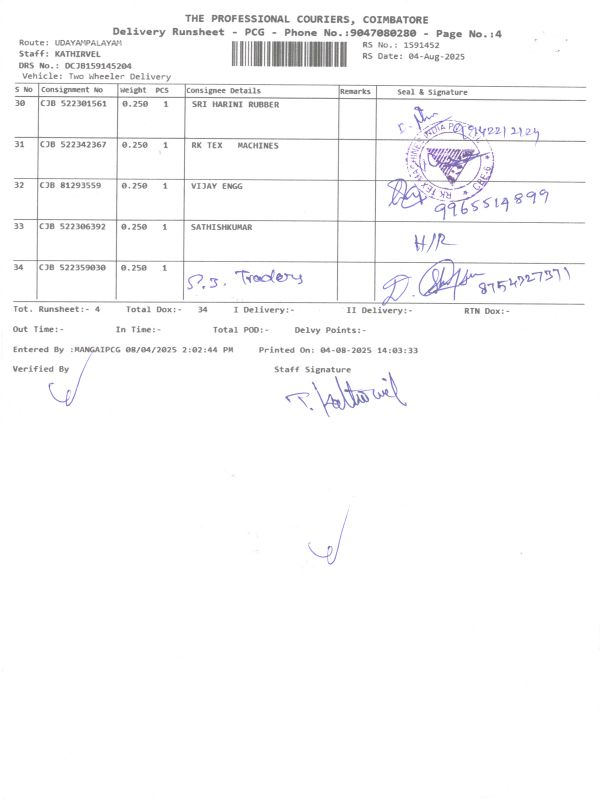 THE PROFESSIONAL COURIERS, COIMBATORE
Delivery Runsheet - PCG - Phone No.:9047080280 - Page No.:4
Route: UDAYAMPALAYAM
RS No.: 1591452
Staff: KATHIRVEL
RS Date: 04-Aug-2025
DRS No.: DCJB159145204
Vehicle: Two Wheeler Delivery
S No Consignment No Weight PCS Consignee Details Remarks Seal & Signature
30 CJB 522301561 0.250 1 SRI HARINI RUBBER
31 CJB 522342367 0.250 1 RK TEX MACHINES
RK TEX MACHINES INDIA CBE-6
32 CJB 81293559 0.250 1 VIJAY ENGG
9965514899
33 CJB 522306392 0.250 1 SATHISHKUMAR H/R
34 CJB 522359030 0.250 1 Traders
8754327371
Tot. Runsheet:- 4 Total Dox:- 34 I Delivery:- II Delivery:- RTN Dox:-
Out Time:- In Time:- Total POD:- Delvy Points:-
Entered By :MANGAIPCG 08/04/2025 2:02:44 PM Printed On: 04-08-2025 14:03:33
Verified By Staff Signature
T. Kathirvel